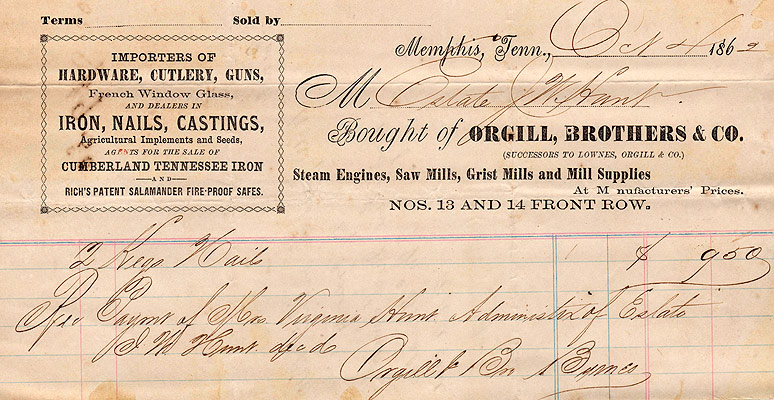 Terms Sold by
IMPORTERS OF
HARDWARE, CUTLERY, GUNS,
French Window Glass,
AND DEALERS IN
IRON, NAILS, CASTINGS,
Agricultural Implements and Seeds,
AGENTS FOR THE SALE OF
CUMBERLAND TENNESSEE IRON
—AND—
RICH'S PATENT SALAMANDER FIRE-PROOF SAFES.
Memphis, Tenn., 186
M Estate J W Hunt
Bought of ORGILL, BROTHERS & CO.
(SUCCESSORS TO LOWNES, ORGILL & CO.)
Steam Engines, Saw Mills, Grist Mills and Mill Supplies
At M nufacturers' Prices.
NOS. 13 AND 14 FRONT ROW.
2 Kegs Nails $ 950
Paymt of Mrs. Virginia Hunt Administix of Estate
J W Hunt decd
Orgill Bro